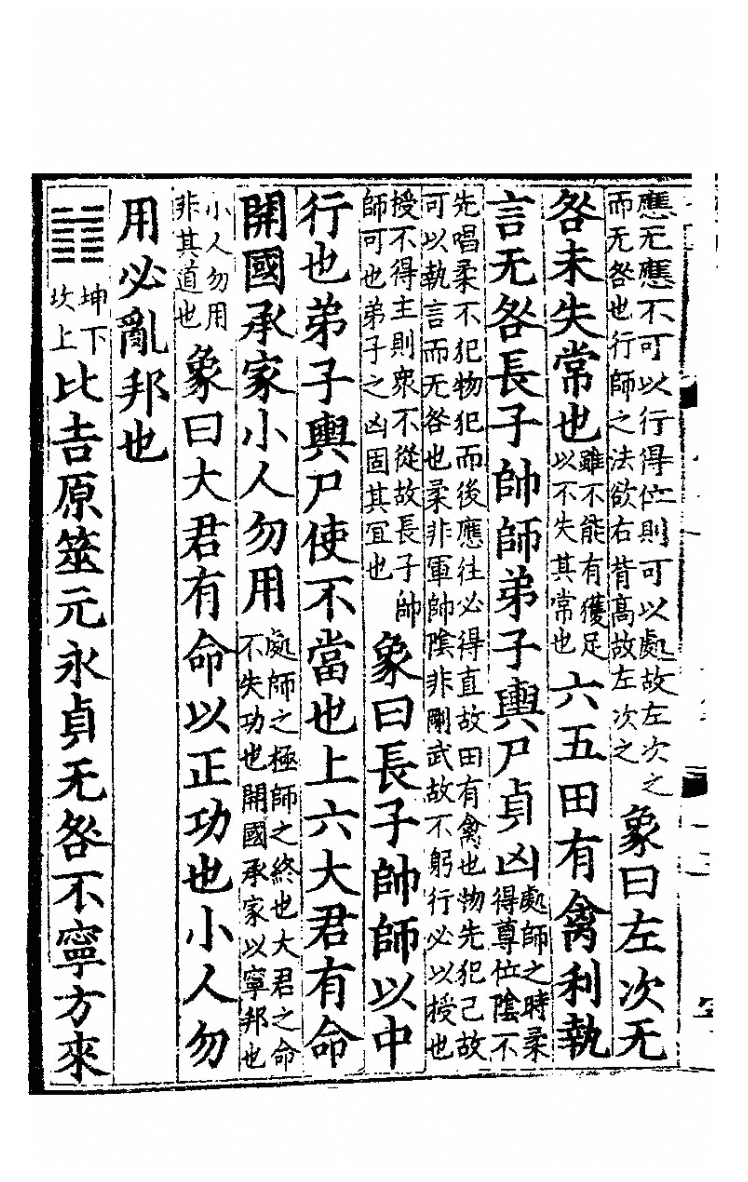 應无應不可以行得位則可以處故左次之
而无咎也行師之法欲右背高故左次之
象曰左次无
咎未失常也
雖不能有獲足
以不失其常也
六五田有禽利執
言无咎長子帥師弟子輿尸貞凶
處師之時柔
得尊位陰不
先唱柔不犯物犯而後應往必得直故田有禽也物先犯己故
可以執言而无咎也柔非軍帥陰非剛武故不躬行必以授也
授不得主則衆不從故長子帥
師可也弟子之凶固其冝也
象曰長子帥師以中
行也弟子輿尸使不當也上六大君有命
開國承家小人勿用
處師之極師之終也大君之命
不失功也開國承家以寧邦也
小人勿用
非其道也
象曰大君有命以正功也小人勿
用必亂邦也
䷇
坤下
坎上
比吉原筮元永貞无咎不寧方來